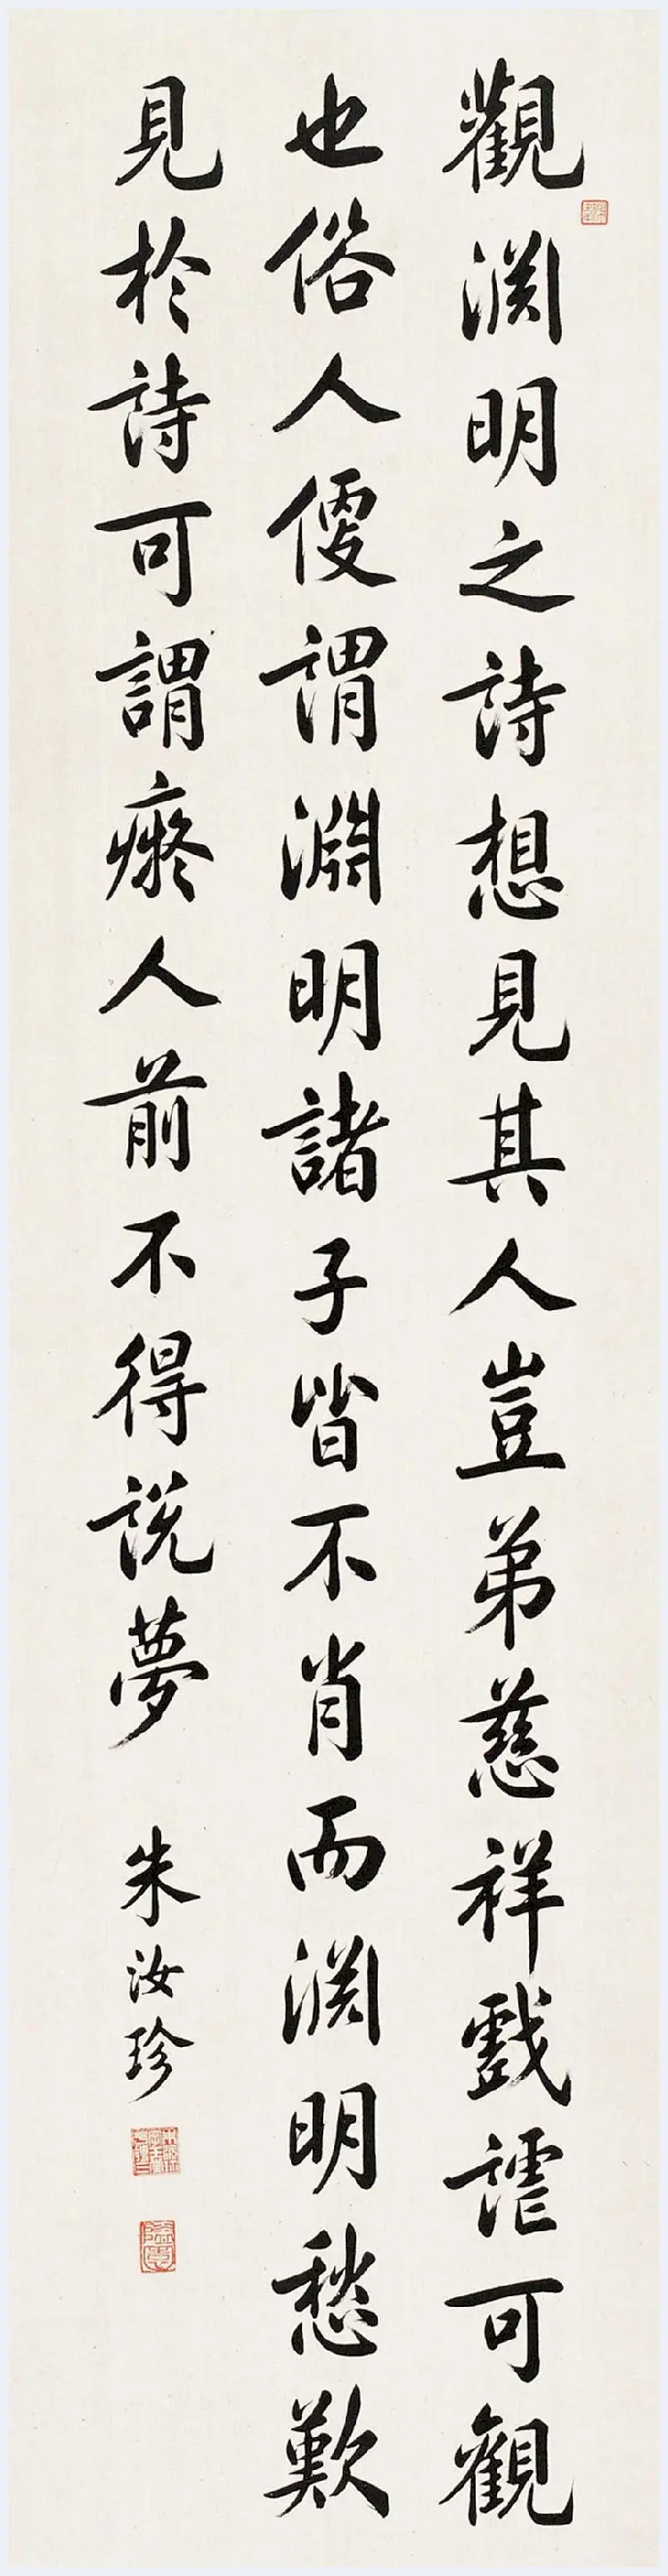 觀渊明之詩想見其人豈弟慈祥戲謔可觀
也俗人便謂淵明諸子皆不肖而渊明愁歎
見於詩可謂癡人前不得説夢
朱汝珍